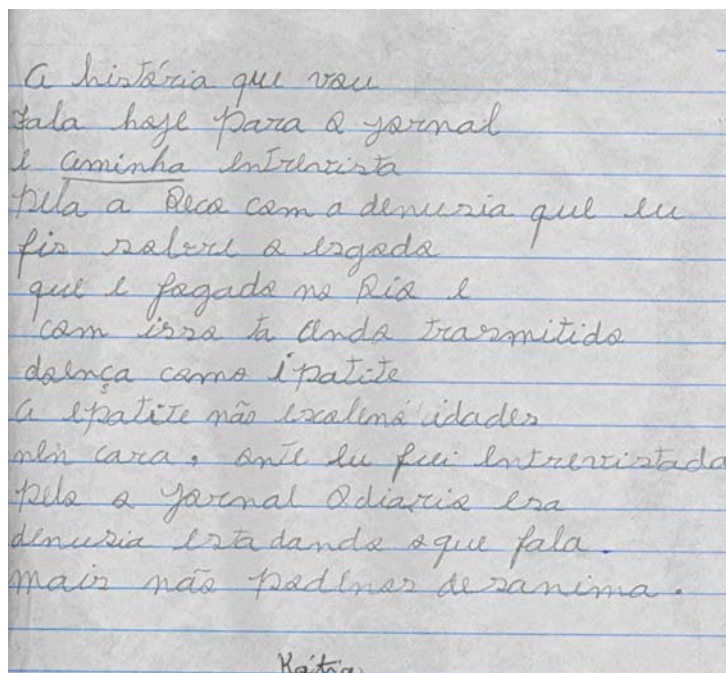 A história que vou
fala hoje para o jornal
e aminha entrevista
pela a Reco com a denusia que eu
fis sobre o esgodo
que e fogado no Rio e
com isso ta ando trasmitido
doença como ipatite
A epatite não escolené idades
nen cara, onte eu fui entrevistada
pelo o jornal Odiario esa
denusia esta dando oque fala.
mais não podenos desanima.
Kátia